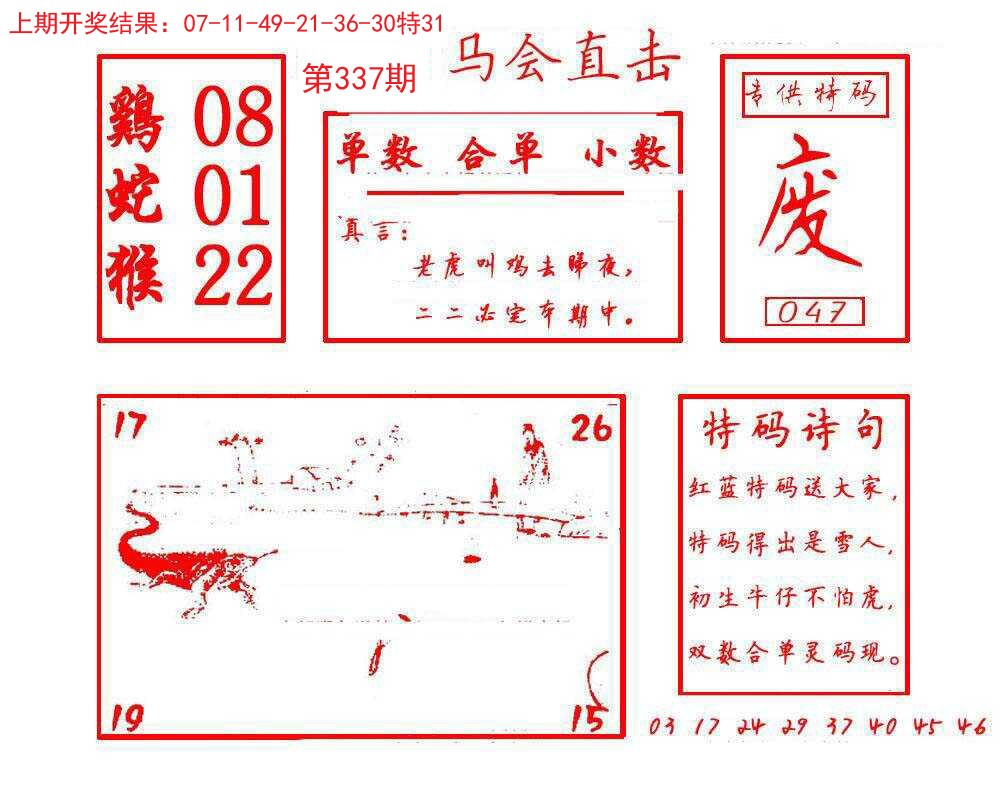 上期开奖结果：07-11-49-21-36-30特31
马会直击
第337期
鷄 08
蛇 01
猴 22
单数 合单 小数
真言：
老虎叫鸡去睇夜，
二二必定本期中。
专供特码
废
047
17
26
19
15
特码诗句
红蓝特码送大家，
特码得出是雪人，
初生牛仔不怕虎，
双数合单灵码现。
03 17 24 29 37 40 45 46